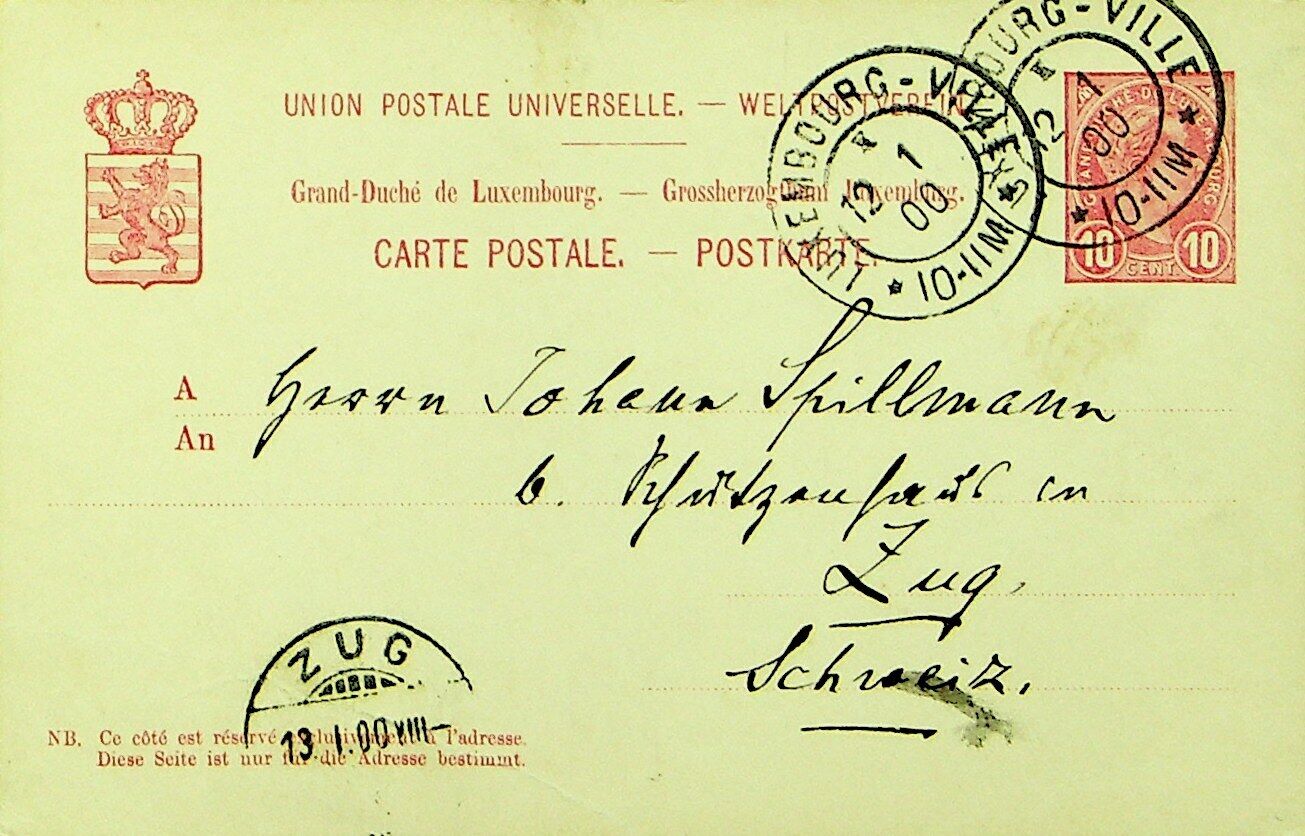 UNION POSTALE UNIVERSELLE. — WELTPOSTVEREIN.
Grand-Duché de Luxembourg. — Grossherzogthum Luxemburg.
CARTE POSTALE. — POSTKARTE.
LUXEMBOURG-VILLE
12 1
00
10-11M
BOURG-VILLE
12 1
00
10-11M
10 CENT. 10
A
An
Herrn Johann Spillmann
b. Schützenhaus in
Zug,
Schweiz.
ZUG
13.I.00 VIII–
NB. Ce côté est réservé exclusivement à l'adresse.
Diese Seite ist nur für die Adresse bestimmt.